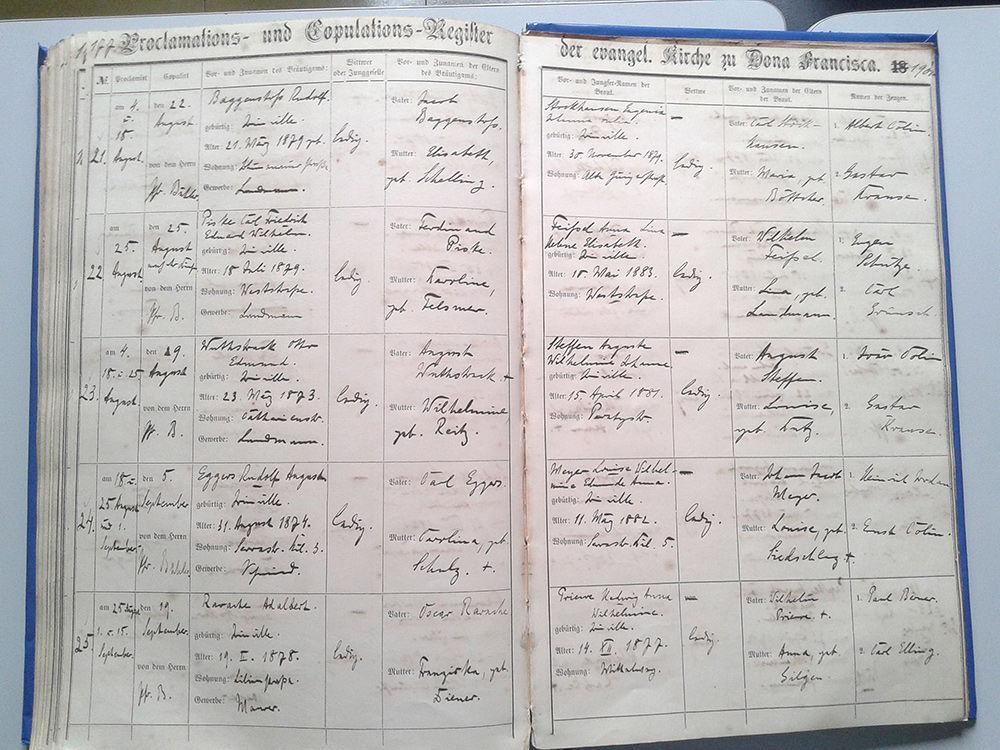 177 Proclamations- und Copulations-Register
der evangel. Kirche zu Dona Francisca. 18 190
№ Proclamirt Copulirt Vor- und Zunamen des Bräutigams: Wittwer oder Junggeselle Vor- und Zunamen der Eltern des Bräutigams:
Vor- und Jungfer-Namen der Braut. Wittwe Vor- und Zunamen der Eltern der Braut. Namen der Zeugen.
21. am 4. u. 18 August den 22. August von dem Herrn Pf. Bühler
Baggenstoss Rudolf.
gebürtig: Joinville.
Alter: 21. März 1879 gb.
Wohnung:
Gewerbe: Landmann.
ledig.
Vater: Jacob
Baggenstoss.
Mutter: Elisabeth,
geb. Schelling.
Stockhausen Eugenie
gebürtig: Joinville.
Alter: 30. November 1879.
Wohnung:
ledig
Vater: Carl Stock-
hausen.
Mutter: Maria, geb.
Böttcher.
1. Albert Colin.
2. Gustav
Krause.
22. am 25. August den 25. August von dem Herrn Pf. B.
Piske Carl Friedrich
Eduard Wilhelm.
gebürtig: Joinville.
Alter: 18 Juli 1879.
Wohnung: Weststrasse.
Gewerbe: Landmann
ledig.
Vater: Ferdinand
Piske.
Mutter: Karoline,
geb. Felsmer.
Anna Lina
Helene Elisabeth.
gebürtig: Joinville.
Alter: 18. Mai 1883.
Wohnung: Weststrasse.
ledig
Vater: Wilhelm
Mutter: Lina, geb.
Landmann.
1. Eugen
Schulze.
2. Carl
23. am 4. 18. u. 25 August. den 29. August von dem Herrn Pf. B.
Wuthstrack Otto
Edmund.
gebürtig: Joinville.
Alter: 23. März 1873.
Wohnung: Catharinenstr.
Gewerbe: Landmann.
ledig.
Vater: August
Wuthstrack. +
Mutter: Wilhelmine,
geb. Reitz.
Steffen Auguste
Wilhelmine Johanne
gebürtig: Joinville.
Alter: 15. April 1881.
Wohnung:
ledig.
Vater: August
Steffen.
Mutter: Louise,
geb.
1. Colin
2. Gustav
Krause.
24. am 18. u. 25 August und 1. September. den 5. September von dem Herrn Pf. Bühler
Eggers Rudolf August
gebürtig: Joinville.
Alter: 31. August 1874.
Wohnung: Serrastr. Kil. 3.
Gewerbe:
ledig.
Vater: Carl Eggers.
Mutter: Carolina, geb.
Schulz. +
Meyer Louise Wilhel-
mine Anna.
gebürtig: Joinville.
Alter: 11. März 1882.
Wohnung: Serrastr. Kil. 5.
ledig.
Vater: Johann Jacob
Meyer.
Mutter: Louise, geb.
1. Heinrich Jordan
2. Ernst Colin.
25. am 25 Aug. 1. u. 15. September. den 19. September. von dem Herrn Pf. B.
Adalbert.
gebürtig: Joinville.
Alter: 19. I. 1878.
Wohnung:
Gewerbe: Maurer.
ledig.
Vater: Oscar
Mutter: Franziska, geb.
Diener.
Priewe Hedwig Anna
Wilhelmine.
gebürtig: Joinville.
Alter: 14. XII. 1877.
Wohnung:
ledig.
Vater: Wilhelm
Priewe +.
Mutter: Anna, geb.
Gilgen
1. Paul
2. Carl Elling.